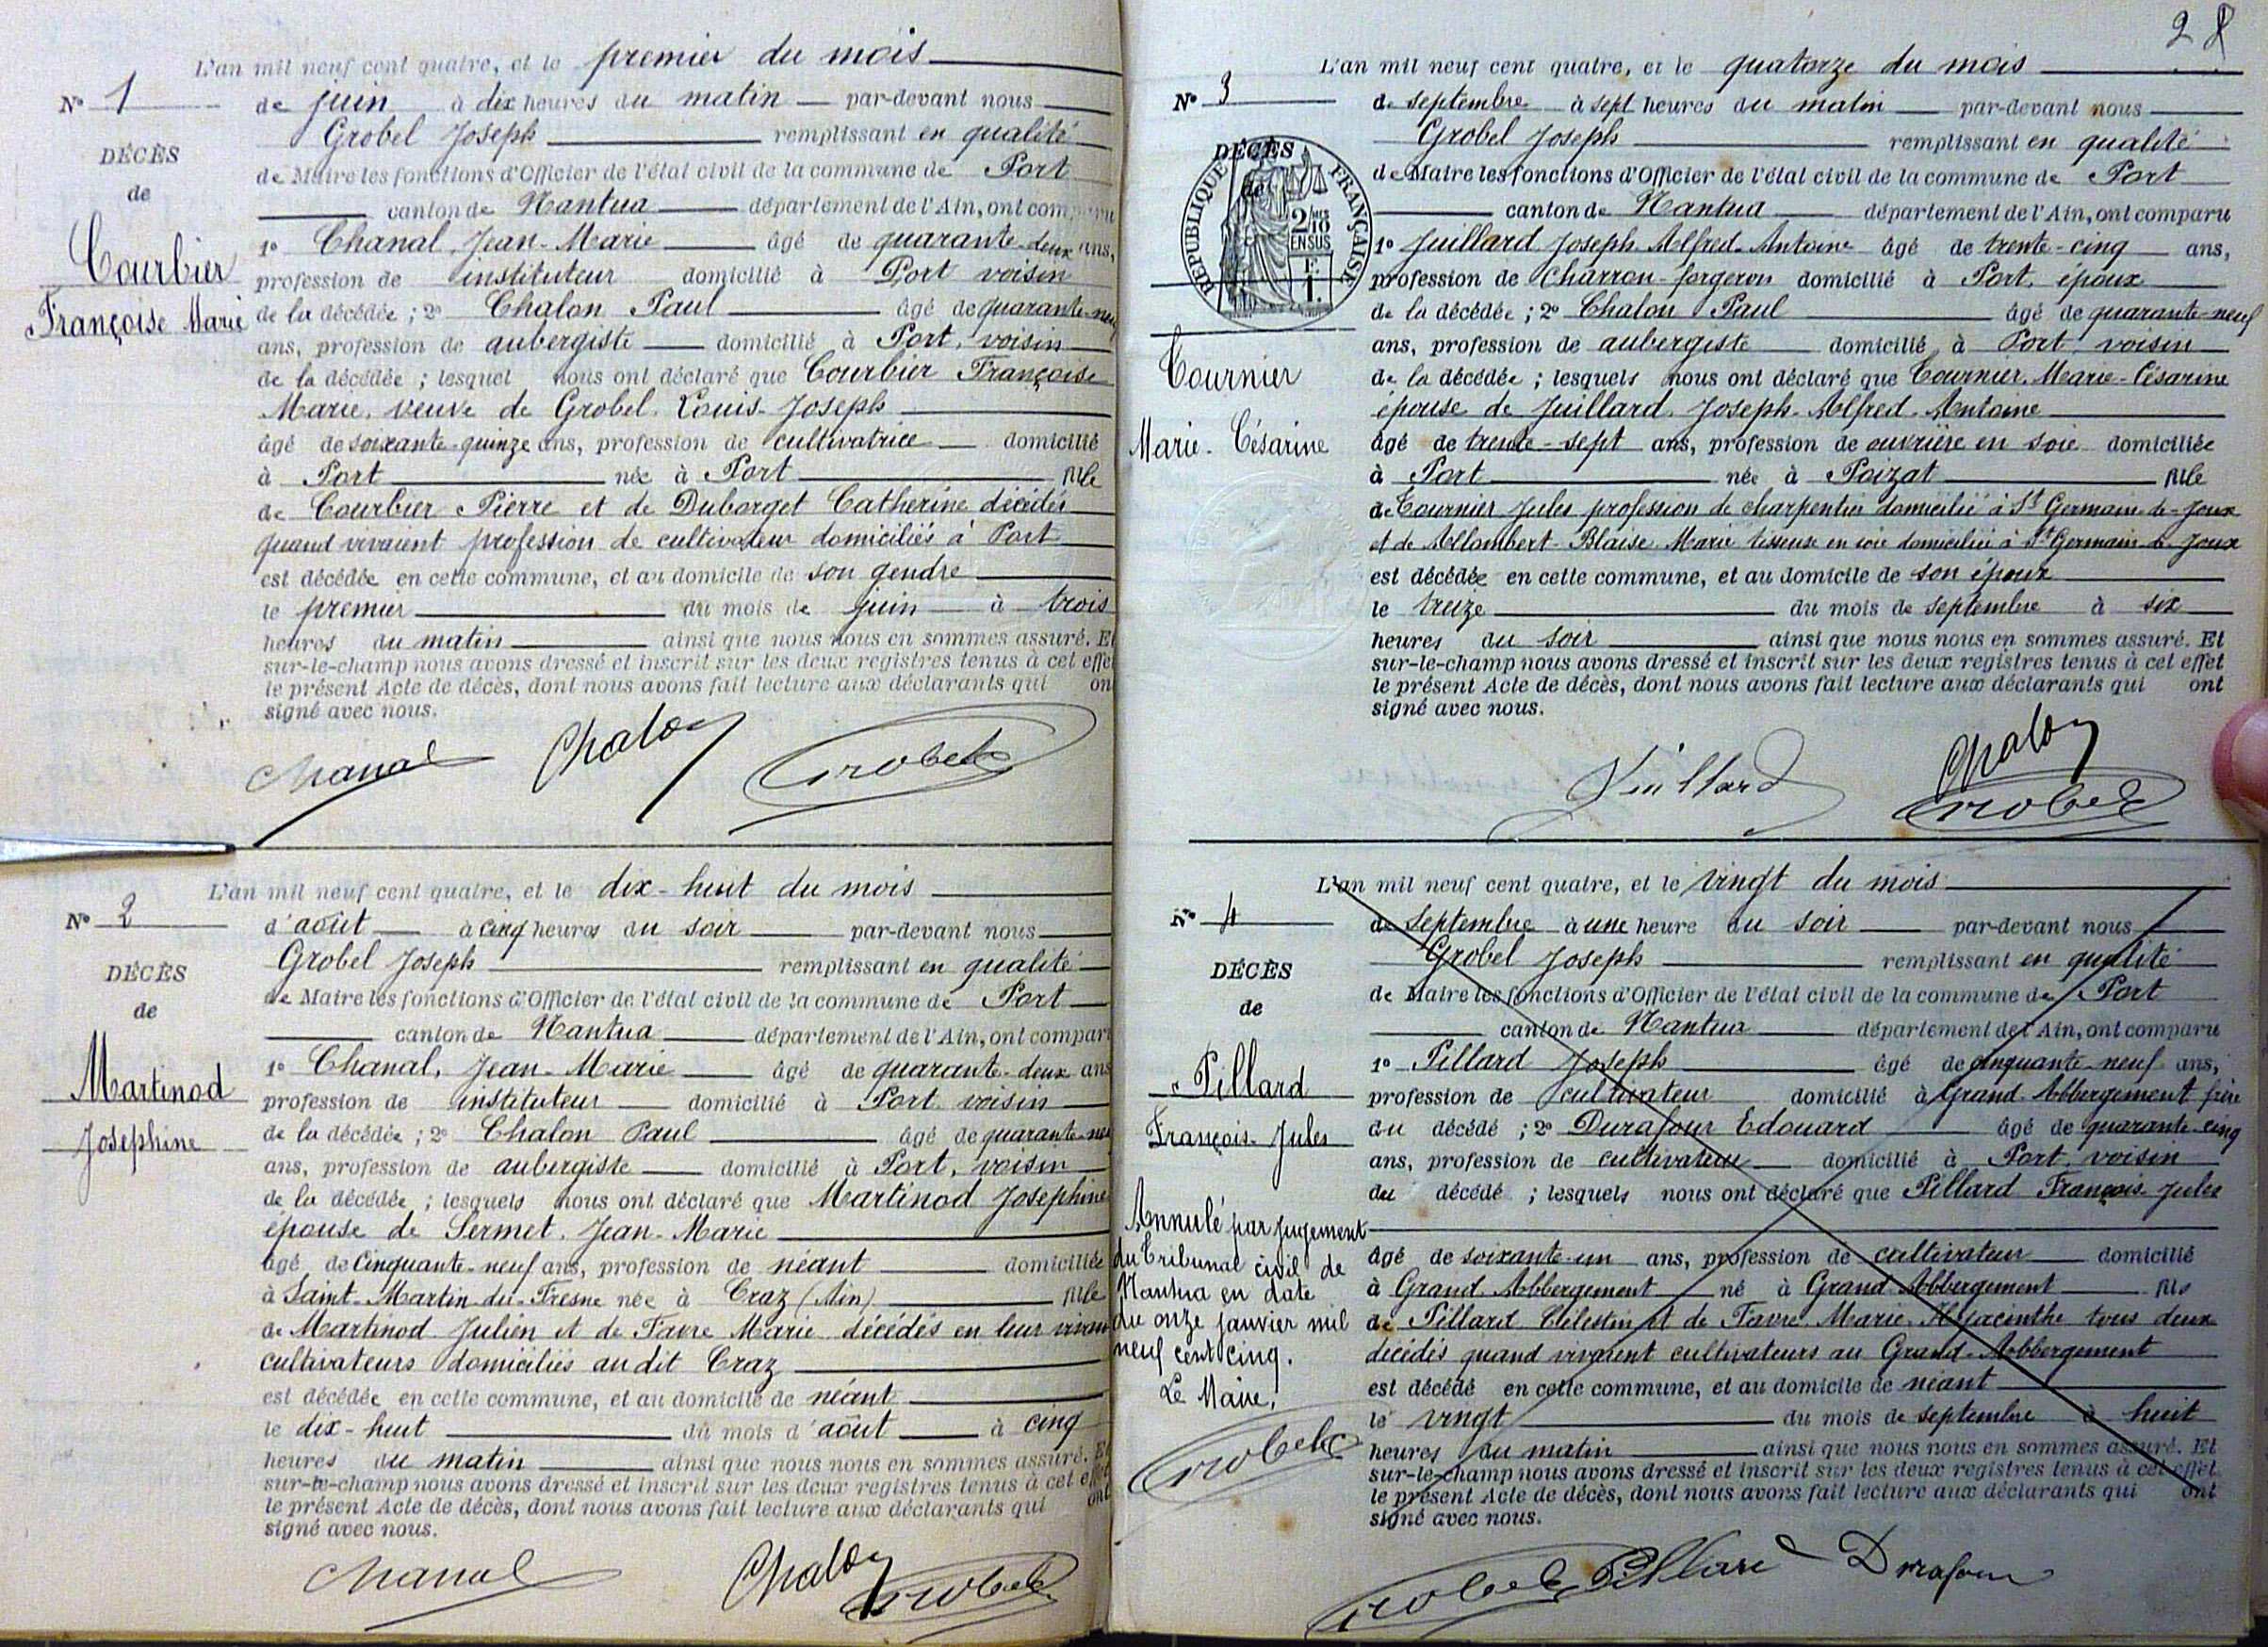 L'an mil neuf cent quatre, et le premier du mois
N° 1
de juin à dix heures du matin par-devant nous
Grobel Joseph remplissant en qualité
DÉCÈS
de Maire les fonctions d'Officier de l'état civil de la commune de Port
de
canton de Nantua département de l'Ain, ont comparu
Courbier
1° Chanal, Jean-Marie âgé de quarante-deux ans,
profession de instituteur domicilié à Port voisin
Françoise Marie
de la décédée ; 2° Chalon Paul âgé de quarante-neuf
ans, profession de aubergiste domicilié à Port, voisin
de la décédée ; lesquel nous ont déclaré que Courbier Françoise
Marie, veuve de Grobel, Louis-Joseph
âgé de soixante-quinze ans, profession de cultivatrice domicilié
à Port née à Port fille
de Courbier Pierre et de Duborget Catherine décédés
quand vivaient profession de cultivateur domiciliés à Port
est décédée en cette commune, et au domicile de son gendre
le premier du mois de juin à trois
heures du matin ainsi que nous nous en sommes assuré. Et
sur-le-champ nous avons dressé et inscrit sur les deux registres tenus à cet effe
le présent Acte de décès, dont nous avons fait lecture aux déclarants qui on
signé avec nous.
Chanal Chalon Grobel
L'an mil neuf cent quatre, et le dix-huit du mois
N° 2
d'août à cinq heures du soir par-devant nous
Grobel Joseph remplissant en qualité
DÉCÈS
de Maire les fonctions d'Officier de l'état civil de la commune de Port
de
canton de Nantua département de l'Ain, ont compar
Martinod
1° Chanal, Jean-Marie âgé de quarante-deux ans
profession de instituteur domicilié à Port voisin
Josephine
de la décédée ; 2° Chalon Paul âgé de quarante-neu
ans, profession de aubergiste domicilié à Port, voisin
de la décédée ; lesquels nous ont déclaré que Martinod Josephine
épouse de Sermet, Jean-Marie
âgé de Cinquante-neuf ans, profession de néant domiciliée
à Saint-Martin-du-Fresne née à Craz (Ain) fille
de Martinod Julien et de Favre Marie décédés en leur vivan
cultivateurs domiciliés au dit Craz
est décédée en cette commune, et au domicile de néant
le dix-huit du mois d'août à cinq
heures du matin ainsi que nous nous en sommes assuré. Et
sur-le-champ nous avons dressé et inscrit sur les deux registres tenus à cet effet
le présent Acte de décès, dont nous avons fait lecture aux déclarants qui ont
signé avec nous.
Chanal Chalon Grobel
28
L'an mil neuf cent quatre, et le quatorze du mois
N° 3
de septembre à sept heures du matin par-devant nous
Grobel Joseph remplissant en qualité
DÉCÈS
de
RÉPUBLIQUE FRANÇAISE
2/10 MES
EN SUS
de Maire les fonctions d'Officier de l'état civil de la commune de Port
canton de Nantua département de l'Ain, ont comparu
1° Juillard Joseph-Alfred-Antoine âgé de trente-cinq ans,
profession de Charron-forgeron domicilié à Port, époux
de la décédée ; 2° Chalon Paul âgé de quarante-neuf
ans, profession de aubergiste domicilié à Port, voisin
Tournier
de la décédée ; lesquels nous ont déclaré que Tournier, Marie-Césarine
épouse de Juillard, Joseph-Alfred-Antoine
Marie-Césarine
âgé de trente-sept ans, profession de ouvrière en soie domiciliée
à Port née à Poizat fille
de Tournier Jules profession de charpentier domicilié à St Germain-de-Joux
et de Allombert-Blaise Marie tisseuse en soie domiciliée à St Germain-de-Joux
est décédée en cette commune, et au domicile de son époux
le treize du mois de septembre à six
heures du soir ainsi que nous nous en sommes assuré. Et
sur-le-champ nous avons dressé et inscrit sur les deux registres tenus à cet effet
le présent Acte de décès, dont nous avons fait lecture aux déclarants qui ont
signé avec nous.
Juillard Chalon
Grobel
L'an mil neuf cent quatre, et le vingt du mois
N° 4
de septembre à une heure du soir par-devant nous
Grobel Joseph remplissant en qualité
DÉCÈS
de Maire les fonctions d'Officier de l'état civil de la commune de Port
de
canton de Nantua département de l'Ain, ont comparu
1° Pillard Joseph âgé de cinquante-neuf ans,
Pillard
profession de cultivateur domicilié à Grand-Abbergement frère
François-Jules
du décédé ; 2° Durafour Edouard âgé de quarante-cinq
ans, profession de cultivateur domicilié à Port, voisin
du décédé ; lesquels nous ont déclaré que Pillard François-Jules
Annulé par jugement
du Tribunal civil de
Nantua en date
du onze janvier mil
neuf cent cinq.
Le Maire,
Grobel
âgé de soixante-un ans, profession de cultivateur domicilié
à Grand-Abbergement né à Grand-Abbergement fils
de Pillard Célestin et de Favre, Marie-Hyacinthe tous deux
décédés quand vivaient cultivateurs au Grand-Abbergement
est décédé en cette commune, et au domicile de néant
le vingt du mois de septembre à huit
heures du matin ainsi que nous nous en sommes assuré. Et
sur-le-champ nous avons dressé et inscrit sur les deux registres tenus à cet effet
le présent Acte de décès, dont nous avons fait lecture aux déclarants qui ont
signé avec nous.
Grobel Pillard Durafour